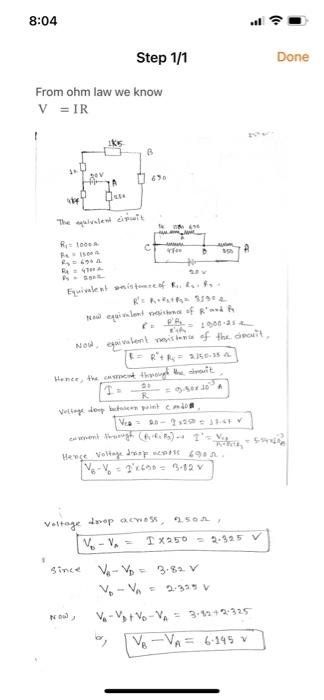 8:04
Step 1/1
Done
From ohm law we know
V = IR
B
1k
20V
A
690
250
The equivalent circuit
R₁ = 1000Ω
R₂ = 1500Ω
R₃ = 690Ω
R₄ = 4700Ω
1k 690
C
4700
D
250
A
20V
Equivalent resistance of R₁, R₂, R₃.
R' = R₁+R₂+R₃ = 3190Ω
Now equivalent resistance of R' and R₄
Now, equivalent resistance of the circuit,
Hence, the current through the circuit
I = 20/R = 9.30×10⁻³ A
Voltage drop between point C and D,
current through (R₁-R₂-R₃) →
Hence voltage drop across 690Ω.
V_B-V_D = I'×690 = 3.82 V
Voltage drop across, 250Ω,
V_D - V_A = I×250 = 2.325 V
Since V_B - V_D = 3.82 V
V_D - V_A = 2.325 V
Now, V_B-V_D+V_D-V_A = 3.82+2.325
or, V_B - V_A = 6.145 V